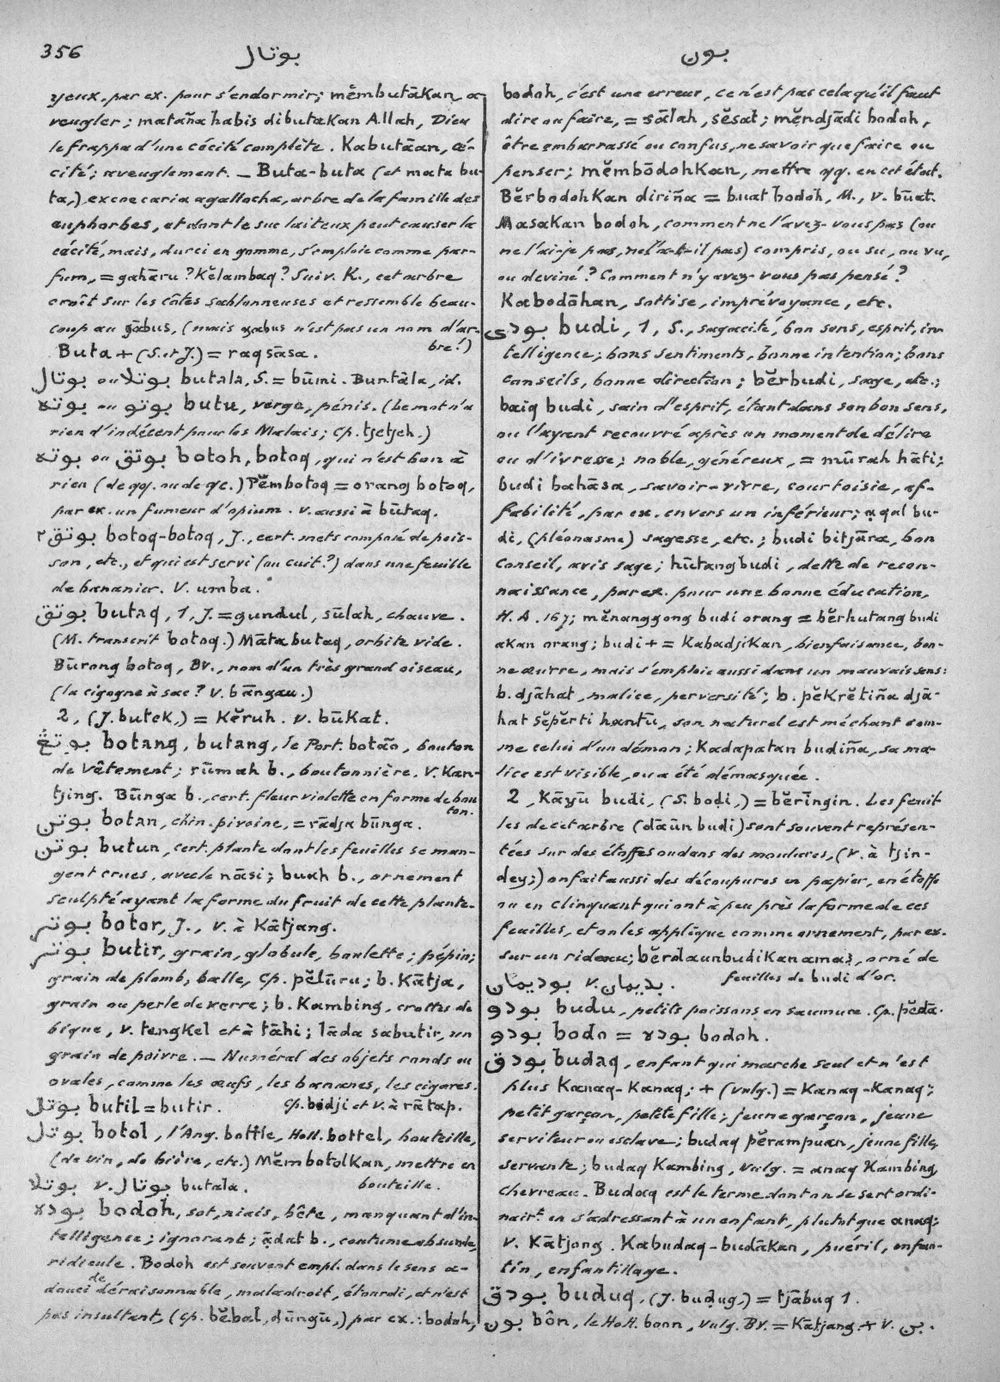 356
بوتال
بون
yeux, par ex. pour s'endormir; mĕmbutākan, a-
veugler; matān̄a habis dibutakan Allah, Dieu
le frappa d'une cécité complète. Kabutāan, cé-
cité; aveuglement. — Buta-buta (et mata bu-
ta,) excoecaria agallocha, arbre de la famille des
euphorbes, et dont le suc laiteux peut causer la
cécité, mais, durci en gomme, s'emploie comme par-
fum, = gahāru? Kĕlambaq? Suiv. K., cet arbre
croît sur les côtes sablonneuses et ressemble beau-
coup au gābus, (mais gabus n'est pas un nom d'ar-
bre!)
Buta + (S. et J.) = raqsāsa.
بوتال ou بوتلا butala, S. = būmi. Buntāla, id.
بوته ou بوتو butu, verge, pénis. (Le mot n'a
rien d'indécent pour les Malais; Cp. tjetjeh.)
بوته ou بوتق botoh, botoq, qui n'est bon à
rien (de qq. ou de qc.) Pĕmbotoq = orang botoq,
par ex. un fumeur d'opium. v. aussi à būtaq.
بوتق٢ botoq-botoq, J., cert. mets composé de pois-
son, etc., et qui est servi (ou cuit?) dans une feuille
de bananier. V. umba.
بوتق butaq, 1, J. = gundul, sūlah, chauve.
(M. transcrit botoq.) Māta butaq, orbite vide.
Būrong botoq, Bv., nom d'un très grand oiseau,
(la cigogne à sac? v. bāngau.)
2, (J. butek,) = Kĕruh. v. būkat.
بوتڠ botang, butang, le Port. botão, bouton
de vêtement; rūmah b., boutonnière. V. Kan-
tjing. Būnga b., cert. fleur violette en forme de bou-
ton.
بوتن botan, chin. pivoine, = rādja būnga.
بوتن butun, cert. plante dont les feuilles se man-
gent crues, avec le nāsi; buah b., ornement
sculpté ayant la forme du fruit de cette plante.
بوتر botor, J., v. à Kātjang.
بوتر butir, grain, globule, boulette; pépin;
grain de plomb, balle, Cp. pĕlūru; b. Kātja,
grain ou perle de verre; b. Kambing, crottes de
bique, v. tengkel et à tāhi; lāda sabutir, un
grain de poivre. — Numéral des objets ronds ou
ovales, comme les œufs, les bananes, les cigares.
Cp. bidji et v. à rātap.
بوتل butil = butir.
بوتل botol, l'Ang. bottle, Holl. bottel, bouteille,
(de vin, de bière, etc.) Mĕmbotolkan, mettre en
bouteille.
بوتلا v. بوتال butala.
بوده bodoh, sot, niais, bête, manquant d'in-
telligence; ignorant; ādat b., coutume absurde,
ridicule. Bodoh est souvent empl. dans le sens a-
douci de déraisonnable, maladroit, étourdi, et n'est
pas insultant, (cp. bĕbal, dūngū,) par ex.: bodoh,
bodoh, c'est une erreur, ce n'est pas cela qu'il faut
dire ou faire, = sālah, sĕsat; mĕndjādi bodoh,
être embarrassé ou confus, ne savoir que faire ou
penser; mĕmbōdohkan, mettre qq. en cet état.
Bĕrbodohkan dirin̄a = buat bodoh, M., v. būat.
Masakan bodoh, comment ne l'avez-vous pas (ou
ne l'ai-je pas, ne l'a-t-il pas) compris, ou su, ou vu,
ou deviné? Comment n'y avez-vous pas pensé?
Kabodōhan, sottise, imprévoyance, etc.
بودى budi, 1, S., sagacité, bon sens, esprit, in-
telligence; bons sentiments, bonne intention; bons
conseils, bonne direction; bĕrbudi, sage, etc.;
baiq budi, sain d'esprit, étant dans son bon sens,
ou l'ayant recouvré après un moment de délire
ou d'ivresse; noble, généreux, = mūrah hāti;
budi bahāsa, savoir-vivre, courtoisie, af-
fabilité, par ex. envers un inférieur; aqal bu-
di, (pléonasme) sagesse, etc.; budi bitjāra, bon
conseil, avis sage; hūtang budi, dette de recon-
naissance, par ex. pour une bonne éducation,
H. A. 167; mĕnanggong budi orang = bĕrhutang budi
akan orang; budi + = Kabadjikan, bienfaisance, bon-
ne œuvre, mais s'emploie aussi dans un mauvais sens:
b. djāhat, malice, perversité; b. pĕkrĕtin̄a djā-
hat sĕpĕrti hantū, son naturel est méchant com-
me celui d'un démon; Kadapatan budin̄a, sa ma-
lice est visible, ou a été démasquée.
2, Kāyū budi, (S. bodi,) = bĕringin. Les feuil-
les de cet arbre (dāūn budi) sont souvent représen-
tées sur des étoffes ou dans des moulures, (v. à tjin-
dey;) on fait aussi des découpures en papier, en étoffe
ou en clinquant qui ont à peu près la forme de ces
feuilles, et on les applique comme ornement, par ex.
sur un rideau; bĕrdaunbudikanamas, orné de
feuilles de budi d'or.
بوديمان v. بديمان.
بودو budu, petits poissons en saumure. Cp. pĕda.
بودو bodo = بوده bodoh.
بودق budaq, enfant qui marche seul et n'est
plus Kanaq-Kanaq; + (vulg.) = Kanaq-Kanaq;
petit garçon, petite fille; jeune garçon, jeune
serviteur ou esclave; budaq pĕrampuan, jeune fille,
servante; budaq Kambing, vulg. = anaq Kambing,
chevreau. Budaq est le terme dont on se sert ordi-
nairt. en s'adressant à un enfant, plutôt que anaq;
V. Kātjong. Kabudaq-budākan, puéril, enfan-
tin, enfantillage.
بودق buduq, (J. buḍug,) = tjābuq 1.
بون bôn, le Holl. boon, vulg. Bv. = Kātjang. + v. بن.